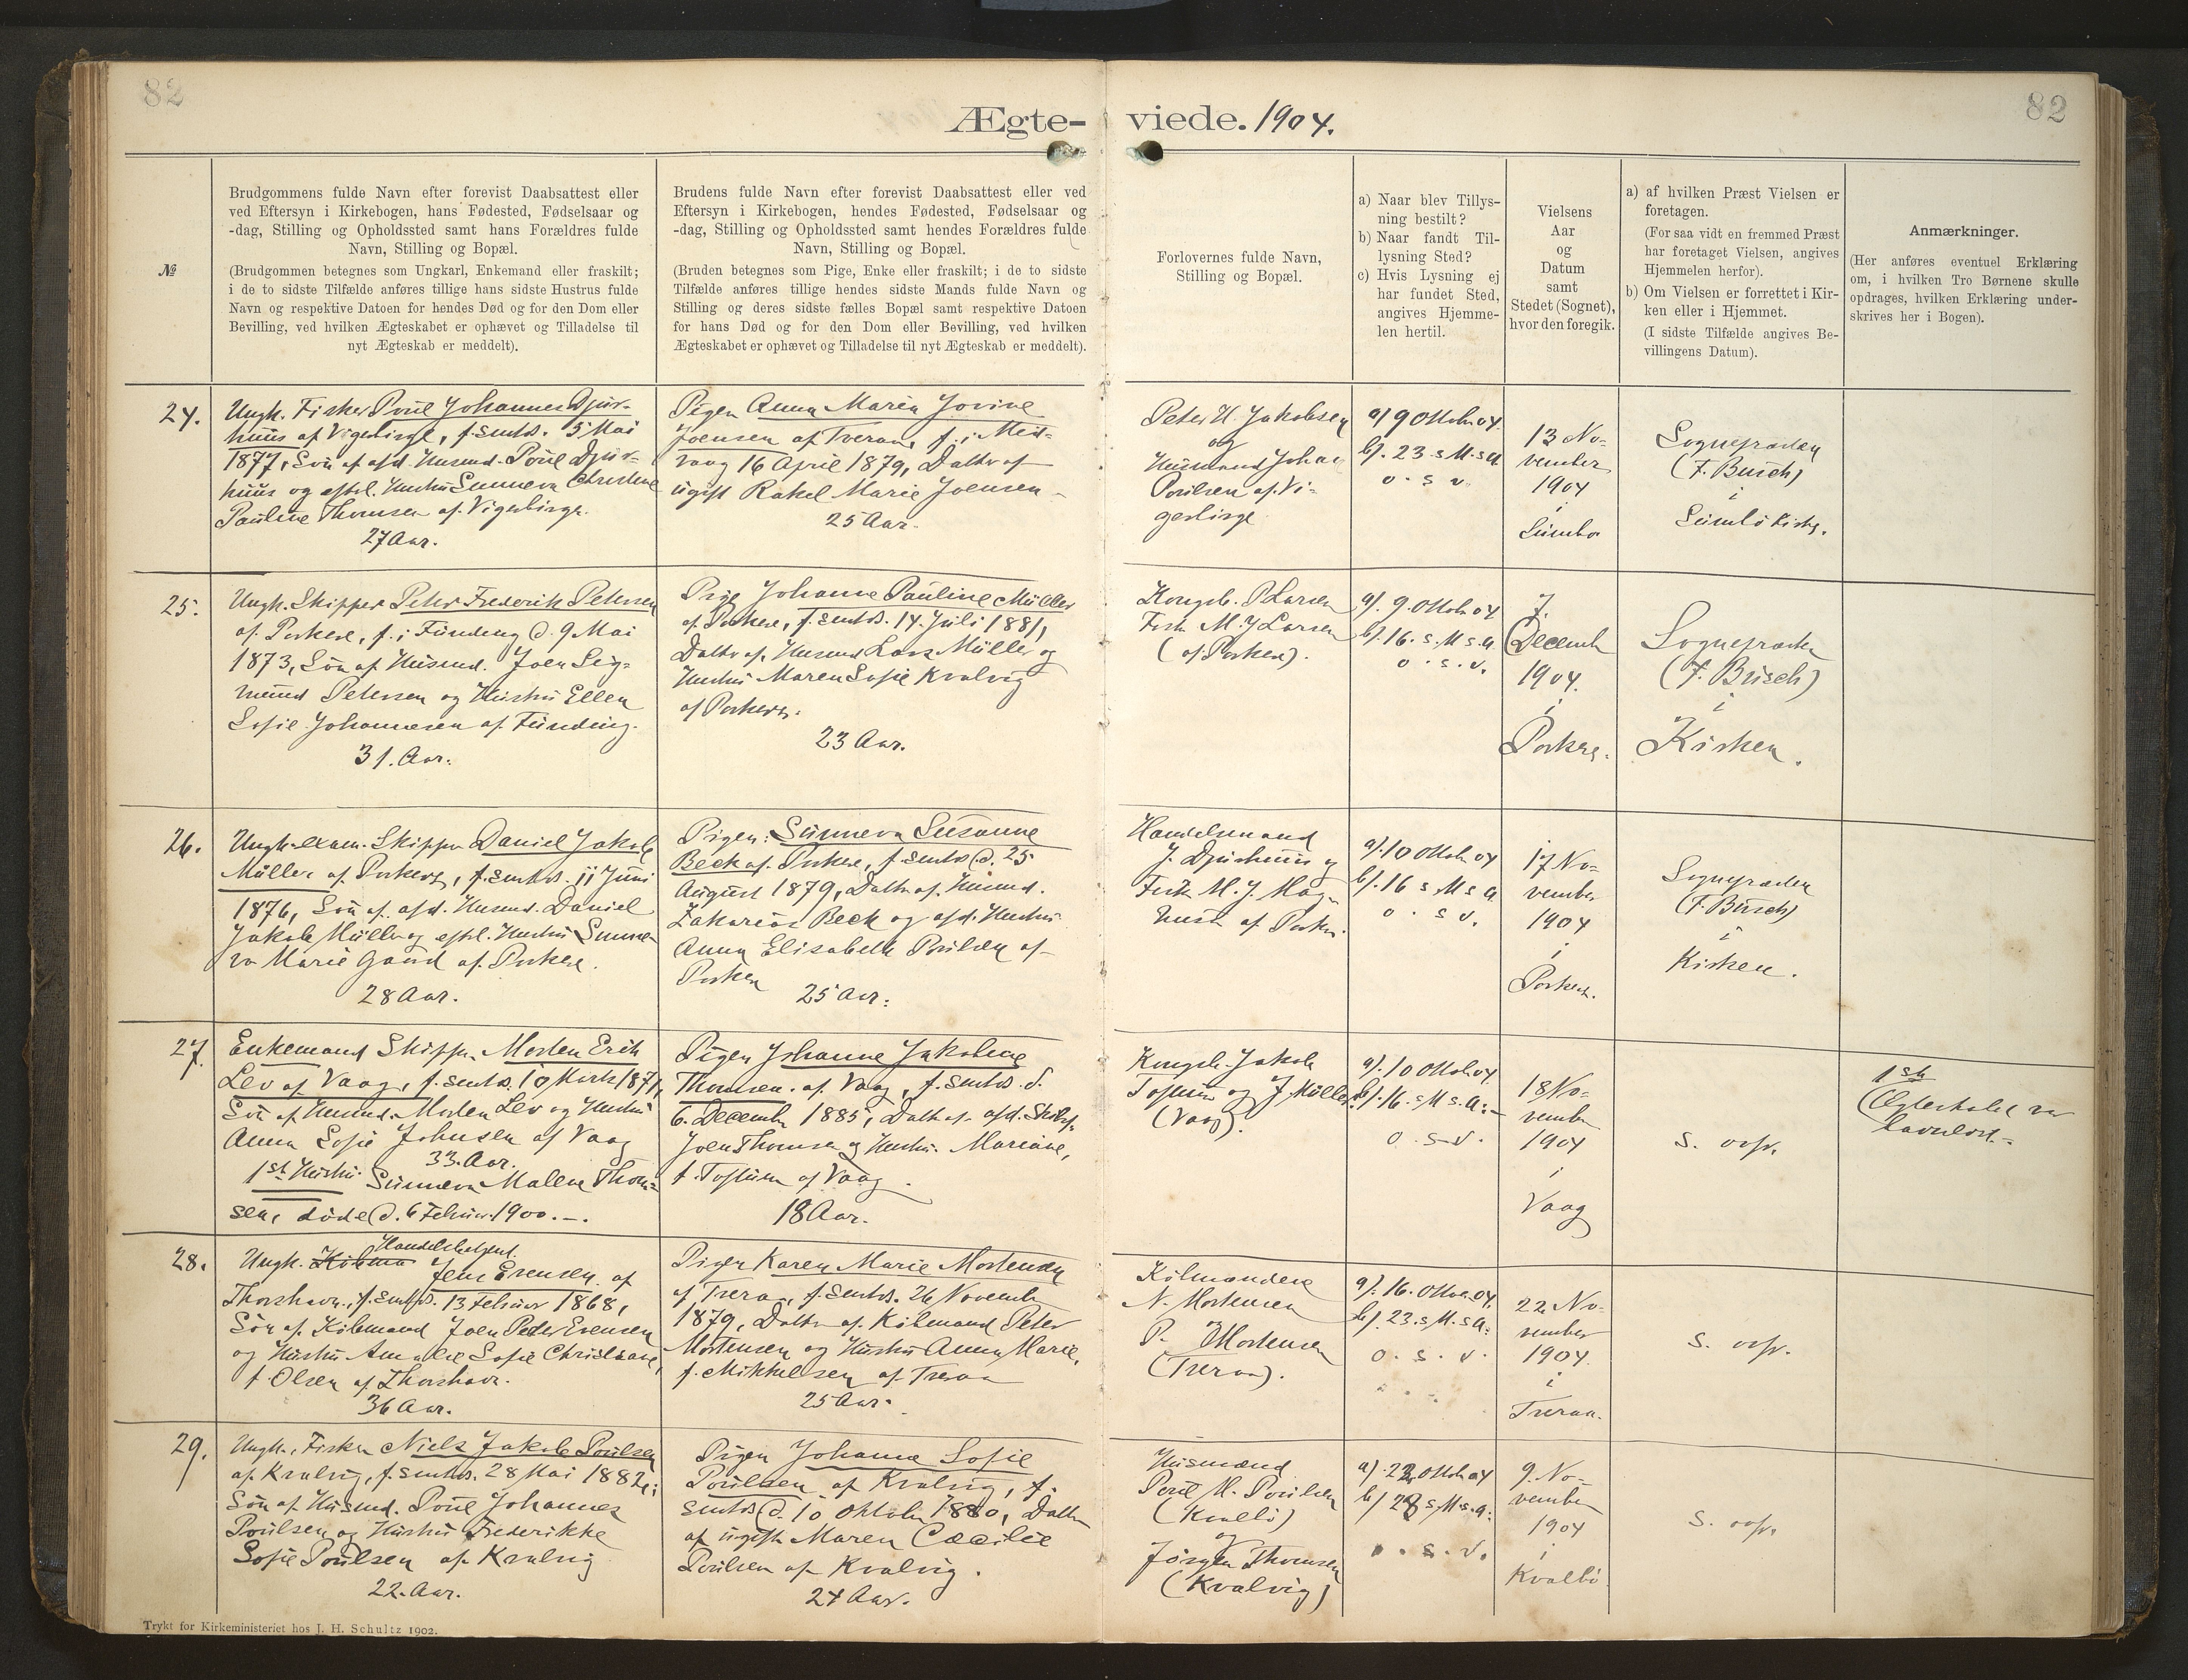 82
82
Ægte- viede. 1904.
№
Brudgommens fulde Navn efter forevist Daabsattest eller
ved Eftersyn i Kirkebogen, hans Fødested, Fødselsaar og
-dag, Stilling og Opholdssted samt hans Forældres fulde
Navn, Stilling og Bopæl.
(Brudgommen betegnes som Ungkarl, Enkemand eller fraskilt;
i de to sidste Tilfælde anføres tillige hans sidste Hustrus fulde
Navn og respektive Datoen for hendes Død og for den Dom eller
Bevilling, ved hvilken Ægteskabet er ophævet og Tilladelse til
nyt Ægteskab er meddelt).
Brudens fulde Navn efter forevist Daabsattest eller ved
Eftersyn i Kirkebogen, hendes Fødested, Fødselsaar og
-dag, Stilling og Opholdssted samt hendes Forældres fulde
Navn, Stilling og Bopæl.
(Bruden betegnes som Pige, Enke eller fraskilt; i de to sidste
Tilfælde anføres tillige hendes sidste Mands fulde Navn og
Stilling og deres sidste fælles Bopæl samt respektive Datoen
for hans Død og for den Dom eller Bevilling, ved hvilken
Ægteskabet er ophævet og Tilladelse til nyt Ægteskab er meddelt).
Forlovernes fulde Navn,
Stilling og Bopæl.
a) Naar blev Tillys-
ning bestilt?
b) Naar fandt Til-
lysning Sted?
c) Hvis Lysning ej
har fundet Sted,
angives Hjemme-
len hertil.
Vielsens
Aar
og
Datum
samt
Stedet (Sognet),
hvor den foregik.
a) af hvilken Præst Vielsen er
foretagen.
(For saa vidt en fremmed Præst
har foretaget Vielsen, angives
Hjemmelen herfor).
b) Om Vielsen er forrettet i Kir-
ken eller i Hjemmet.
(I sidste Tilfælde angives Be-
villingens Datum).
Anmærkninger.
(Her anføres eventuel Erklæring
om, i hvilken Tro Børnene skulle
opdrages, hvilken Erklæring under-
skrives her i Bogen).
24.
Ungk. Fisker Poul Johannes Djur-
huus af Vigerbirge, f. smtds. 5 Mai
1877, Søn af afd. Husmd. Poul Djur-
huus og eftrl. Hustru Sunneva Christine
Pauline Thomsen af Vigerbirge.
27 Aar.
Pigen Anna Maria Jovine
Joensen af Tveraa, f. i Mid-
vaag 16 April 1879, Datter af
ugift Rakel Marie Joensen
25 Aar.
Peter H. Jakobsen
og
Husmand Johan
Poulsen af Vi-
gerbirge
a) 9 Oktobr 04.
b). 23. s. M. s. A
o. s. v.
13 No-
vember
1904
i
Sumbø
Sognepræsten
(F. Busch)
i
Sumbø Kirke.
25.
Ungk. Skipper Peter Frederik Petersen
af Porkere, f. i Funding d. 9 Mai
1873, Søn af Husmd. Joen Sig-
mund Petersen og Hustru Ellen
Sofie Johannesen af Funding.
31. Aar.
Pige Johanne Pauline Müller
af Porkere, f. smtds. 14. Juli 1881,
Datter af Husmd Lars Müller og
Hustru Maren Sofie Kvalvig
af Porkere.
23 Aar.
Kongsb. P Larsen
Fisk. M. J Larsen
(af Porkere).
a). 9. Oktobr 04
b). 16. s. M s. A.
o. s. v.
7.
Decemb
1904.
i
Porkere.
Sognepræsten
(F. Busch)
i
Kirken.
26.
Ungk. exam. Skipper Daniel Jakob
Müller af Porkere, f. smtds. 11 Juni
1876, Søn af afd. Husmd. Daniel
Jakob Müller og eftrl. Hustru Sunne-
va Marie Gaard af Porkere.
28 Aar.
Pigen: Sunneva Susanne
Beck af Porkere, f. smtds d. 25
August 1879, Datter af Husmd.
Zakarias Beck og afd. Hustru
Anna Elisabeth Poulsen af
Porkere
25 Aar.
Handelsmand
J. Djurhuus og
Fisk M. J. Mag-
nusen af Porkere.
a). 10 Oktobr 04
b). 16 s M s A
o. s v.
17 No-
vember
1904
i
Porkere.
Sognepræsten
(F. Busch)
i
Kirken.
27.
Enkemand Skipper Morten Erik
Lev af Vaag, f. smtds. 10 Marts 1871,
Søn af Husmd. Morten Lev og Hustru
Anna Sofie Johnsen af Vaag
33. Aar.
1st Hustru Sunneva Malene Thom-
sen, døde d. 6 Februar 1900.
Pigen Johanne Jakobine
Thomsen af Vaag, f. smtds. d.
6. December 1885, Datter af afd. Skibsf.
Joen Thomsen og Hustru Mariane,
f. Toftum af Vaag.
18 Aar.
Kongsb. Jakob
Toftum og J. Müller
(Vaag).
a). 10 Oktobr 04.
b). 16. s M s. A.
o. s. v.
18 No-
vember
1904
i
Vaag
s. ovfr.
1ste
Ægteskabet var
barnløst.
28.
Ungk. Handelsbetjent.
Jens Evensen af
Thorshavn, f. smtds. 13 Februar 1868,
Søn af Købmand Joen Peter Evensen
og Hustru Amalie Sofie Christiane,
f. Olsen af Thorshavn.
36 Aar.
Pigen Karen Marie Mortensen
af Tveraa, f. smtds. 26 November
1879, Datter af Købmand Peter
Mortensen og Hustru Anna Marie,
f. Mikkelsen af Tveraa
25 Aar.
Købmændene
N. Mortensen
P. Mortensen
(Tveraa).
a). 16. Oktobr. 04.
b). 23. s. M. s A.
o. s. v.
22 No-
vember
1904.
i
Tveraa.
s. ovfr.
29.
Ungk. Fisker Niels Jakob Poulsen
af Kvalvig, f. smtds. 28 Mai 1882,
Søn af Husmd. Poul Johannes
Poulsen og Hustru Frederikke
Sofie Poulsen af Kvalvig
22. Aar.
Pigen Johanna Sofie
Poulsen af Kvalvig, f.
smtds d. 10 Oktober 1880, Datter
af ugift Maren Cæcilie
Poulsen af Kvalvig.
24 Aar.
Husmænd
Poul M. Poulsen
(Kvalbø)
og
Jørgen Thomsen
(Kvalvig)
a). 22 Oktobr 04
b) 28 s. M. s. A.
o. s. v.
9. No-
vember
1904
i
Kvalbø
s. ovfr.
Trykt for Kirkeministeriet hos J. H. Schultz 1902.